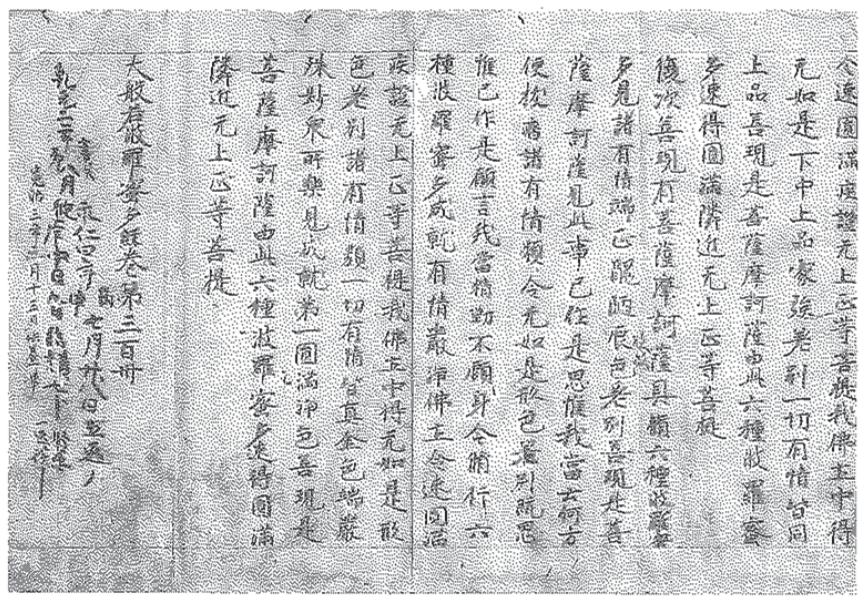 令速圓滿疾證无上正等菩提我佛土中得
无如是下中上品家族差別一切有情皆同
上品善現是菩薩摩訶薩由此六種波羅蜜
多速得圓滿隣近无上正等菩提
復次善現有菩薩摩訶薩具脩六種波羅蜜
多見諸有情端正醜陋形色差別善現是菩
薩摩訶薩見此事已作是思惟我當云何方
便拔濟諸有情類令无如是形色差別既思
惟已作是願言我當精勤不顧身命脩行六
種波羅蜜多成就有情嚴淨佛土令速圓滿
疾證无上正等菩提我佛土中得无如是形
色差別諸有情類一切有情皆真金色端嚴
殊妙衆所樂見成就第一圓滿淨色善現是
菩薩摩訶薩由此六種波羅蜜多速得圓滿
隣近无上正等菩提
大般若波羅蜜多經卷第三百卅
永仁 七月 日
八月彼岸
二月十三日